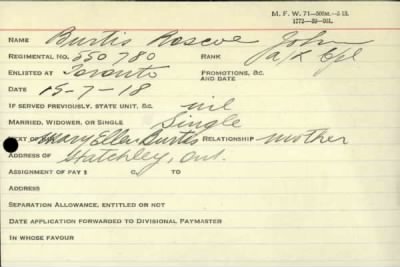 M. F. W. 71—500M.—5-18.
1772—39—961.
NAME Burtis Roscoe John
REGIMENTAL No. 550780 RANK a/x Cpl
ENLISTED AT Toronto PROMOTIONS, &C. AND DATE
DATE 15-7-18
IF SERVED PREVIOUSLY, STATE UNIT, &C. nil
MARRIED, WIDOWER, OR SINGLE Single
NEXT OF Mary Ellen Burtis RELATIONSHIP mother
ADDRESS OF Hatchley, Ont.
ASSIGNMENT OF PAY $ C. TO
ADDRESS
SEPARATION ALLOWANCE, ENTITLED OR NOT
DATE APPLICATION FORWARDED TO DIVISIONAL PAYMASTER
IN WHOSE FAVOUR